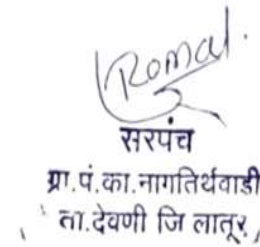 Romal.
सरपंच
ग्रा.पं.का.नागतिर्थवाडी
ता.देवणी जि लातूर